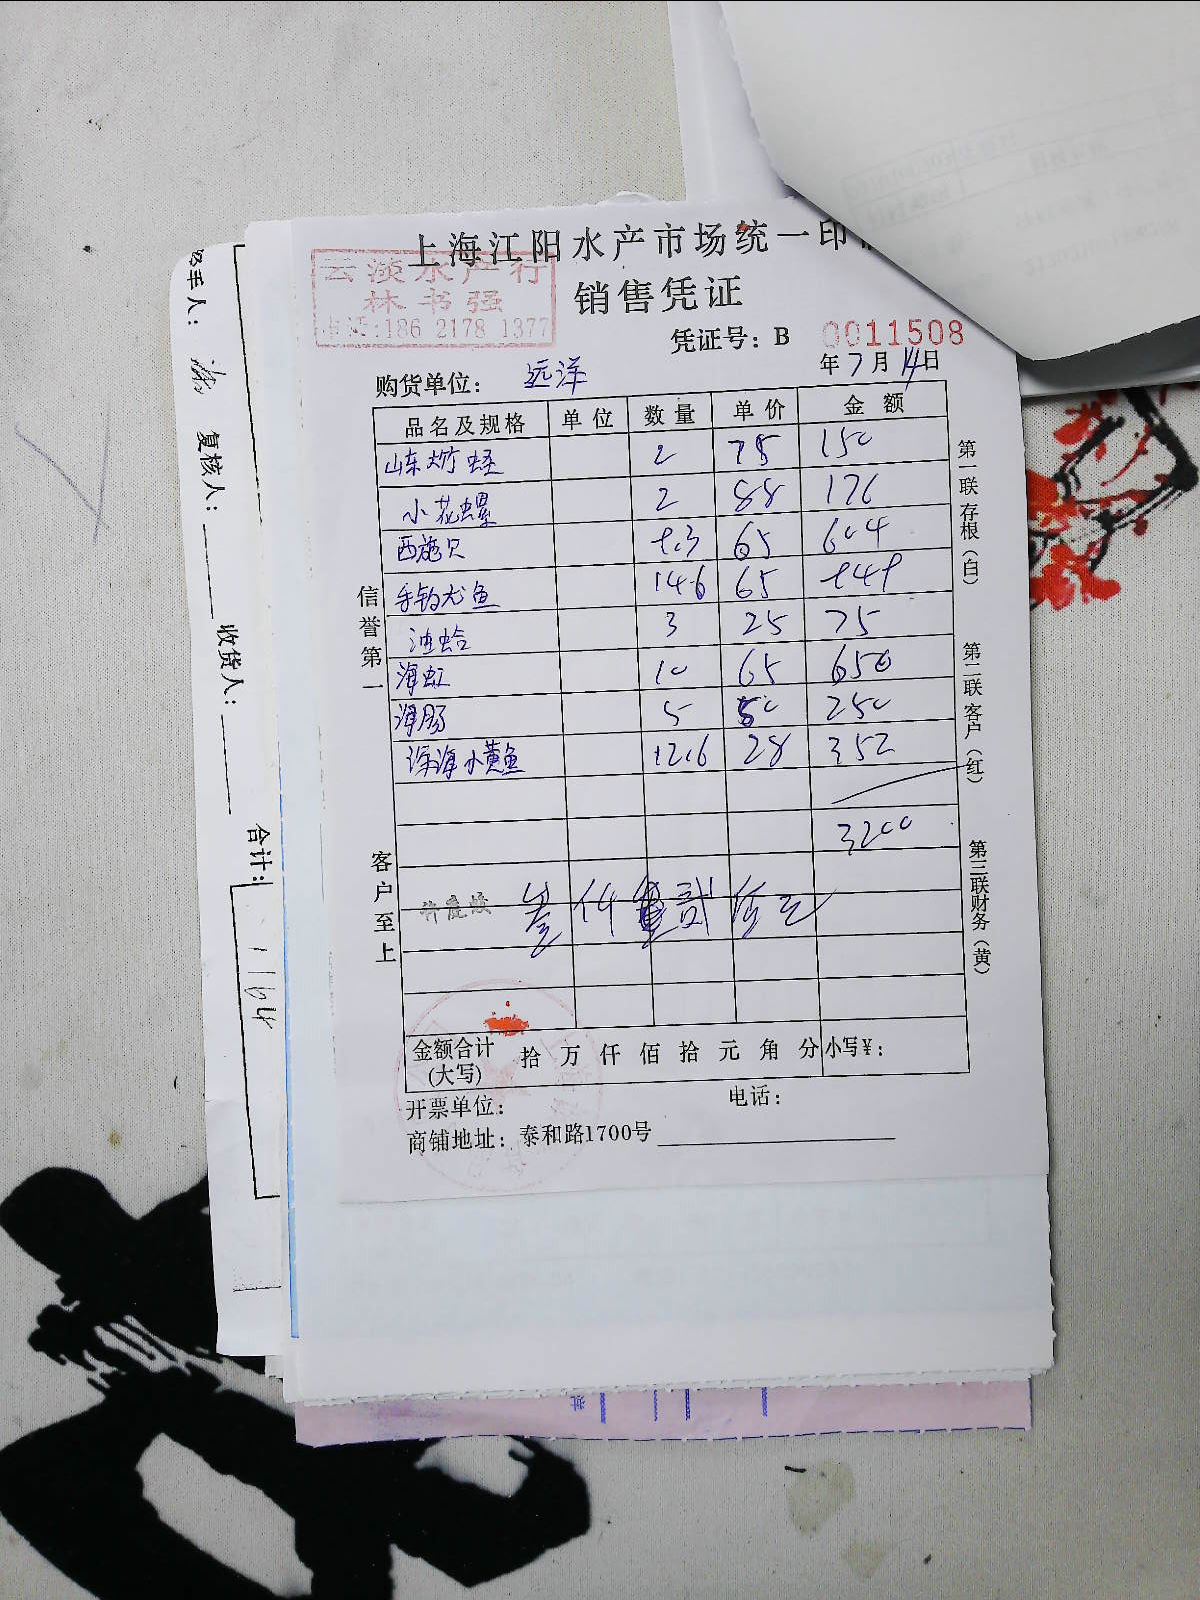 上海江阳水产市场统一印
销售凭证
云淡水产行
林书强
电话:186 2178 1377
凭证号: B 0011508
年7月14日
购货单位: 远洋
品名及规格 单位 数量 单价 金额
山东大竹蛏 2 75 150
小花螺 2 88 176
西施贝 9.3 65 604
手钓尤鱼 14.6 65 949
油蛤 3 25 75
海虹 10 65 650
海肠 5 50 250
深海小黄鱼 12.6 28 352
3200
叁仟 贰佰元
金额合计(大写) 拾 万 仟 佰 拾 元 角 分 小写¥:
开票单位: 电话:
商铺地址: 泰和路1700号
信誉第一
客户至上
第一联存根(白)
第二联客户(红)
第三联财务(黄)
手人:
复核人:
收货人:
合计:
1164